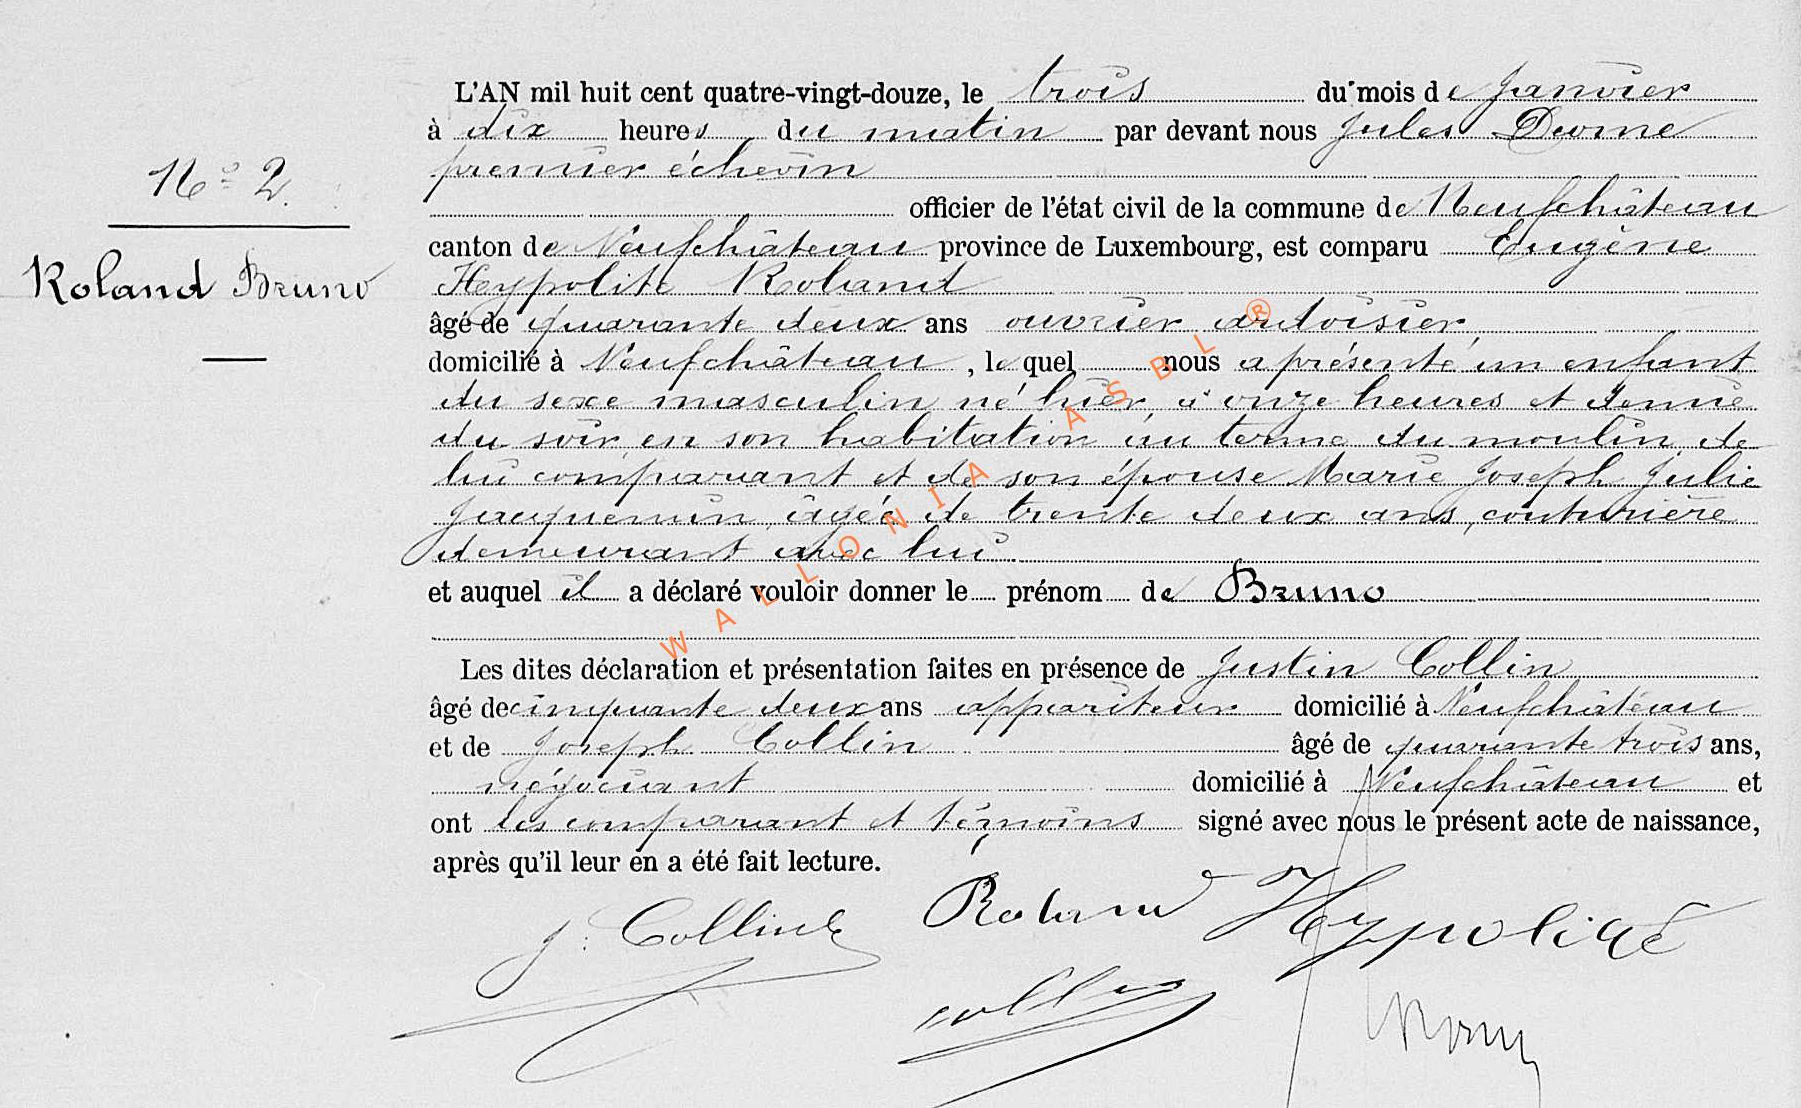 L'AN mil huit cent quatre-vingt-douze, le trois du mois de Janvier
à dix heures du matin par devant nous Jules
premier échevin
Nº 2.
officier de l'état civil de la commune de Neufchâteau
canton de Neufchâteau province de Luxembourg, est comparu Eugène
Roland Bruno
Hypolite Roland
âgé de quarante deux ans ouvrier ardoisier,
domicilié à Neufchâteau, lequel nous a présenté un enfant
du sexe masculin né hier, à onze heures et demie
du soir, en son habitation au terme du moulin, de
lui comparant et de son épouse Marie Joseph Julie
Jacquemin, âgée de trente deux ans, couturière
demeurant avec lui
et auquel il a déclaré vouloir donner le prénom de Bruno
WALLONIA ASBL ®
Les dites déclaration et présentation faites en présence de Justin Collin
âgé de cinquante deux ans appariteur domicilié à Neufchâteau
et de Joseph Collin âgé de quarante trois ans,
négociant domicilié à Neufchâteau et
ont les comparant et témoins signé avec nous le présent acte de naissance,
après qu'il leur en a été fait lecture.
J. Collin Roland Hypolite
Collin